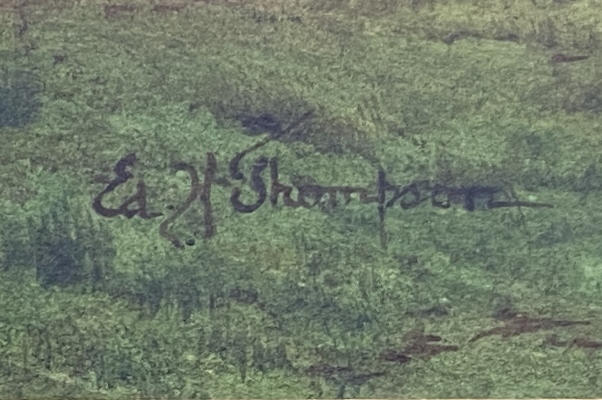 Ed. H Thompson